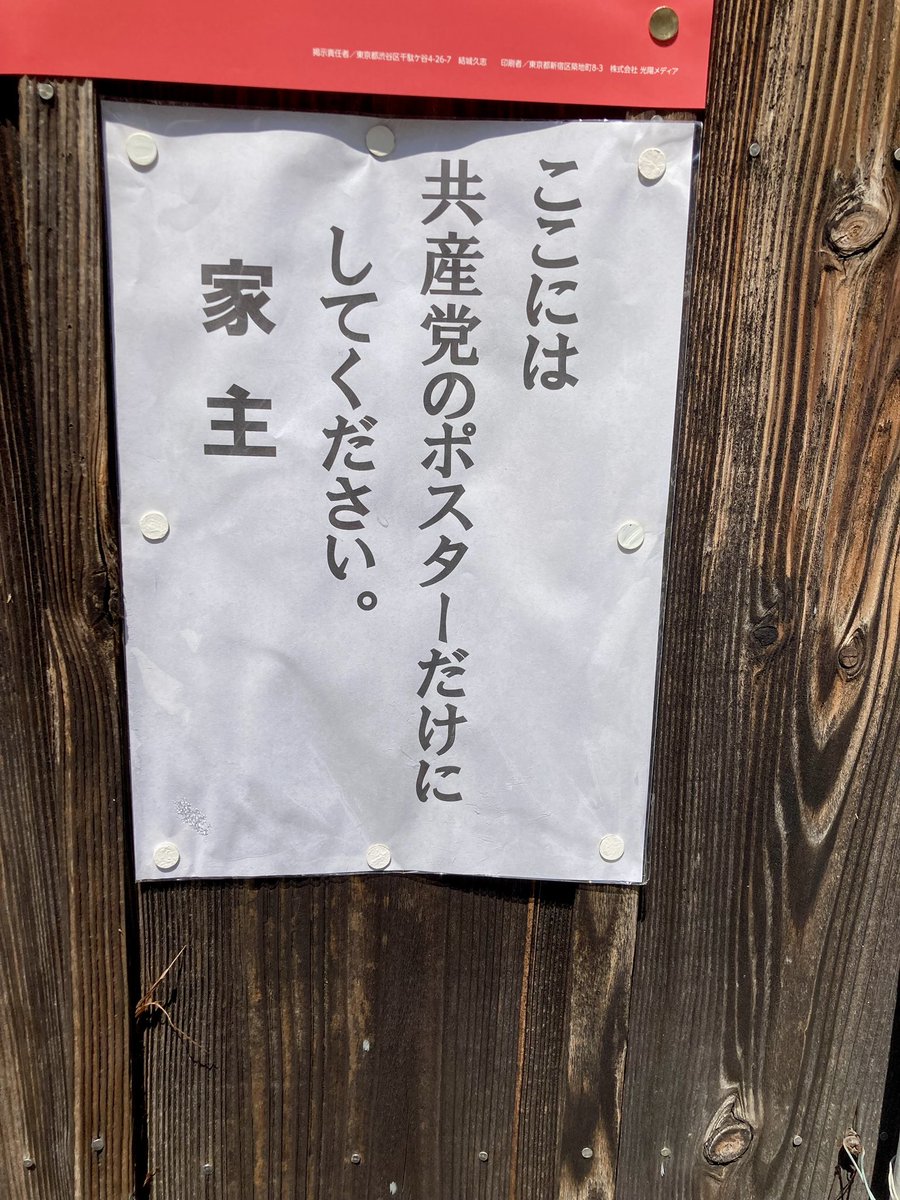 掲示責任者／東京都渋谷区千駄ケ谷4-26-7 結城久志 印刷者／東京都新宿区築地町8-3 株式会社 光陽メディア
ここには
共産党のポスターだけに
してください。
家主